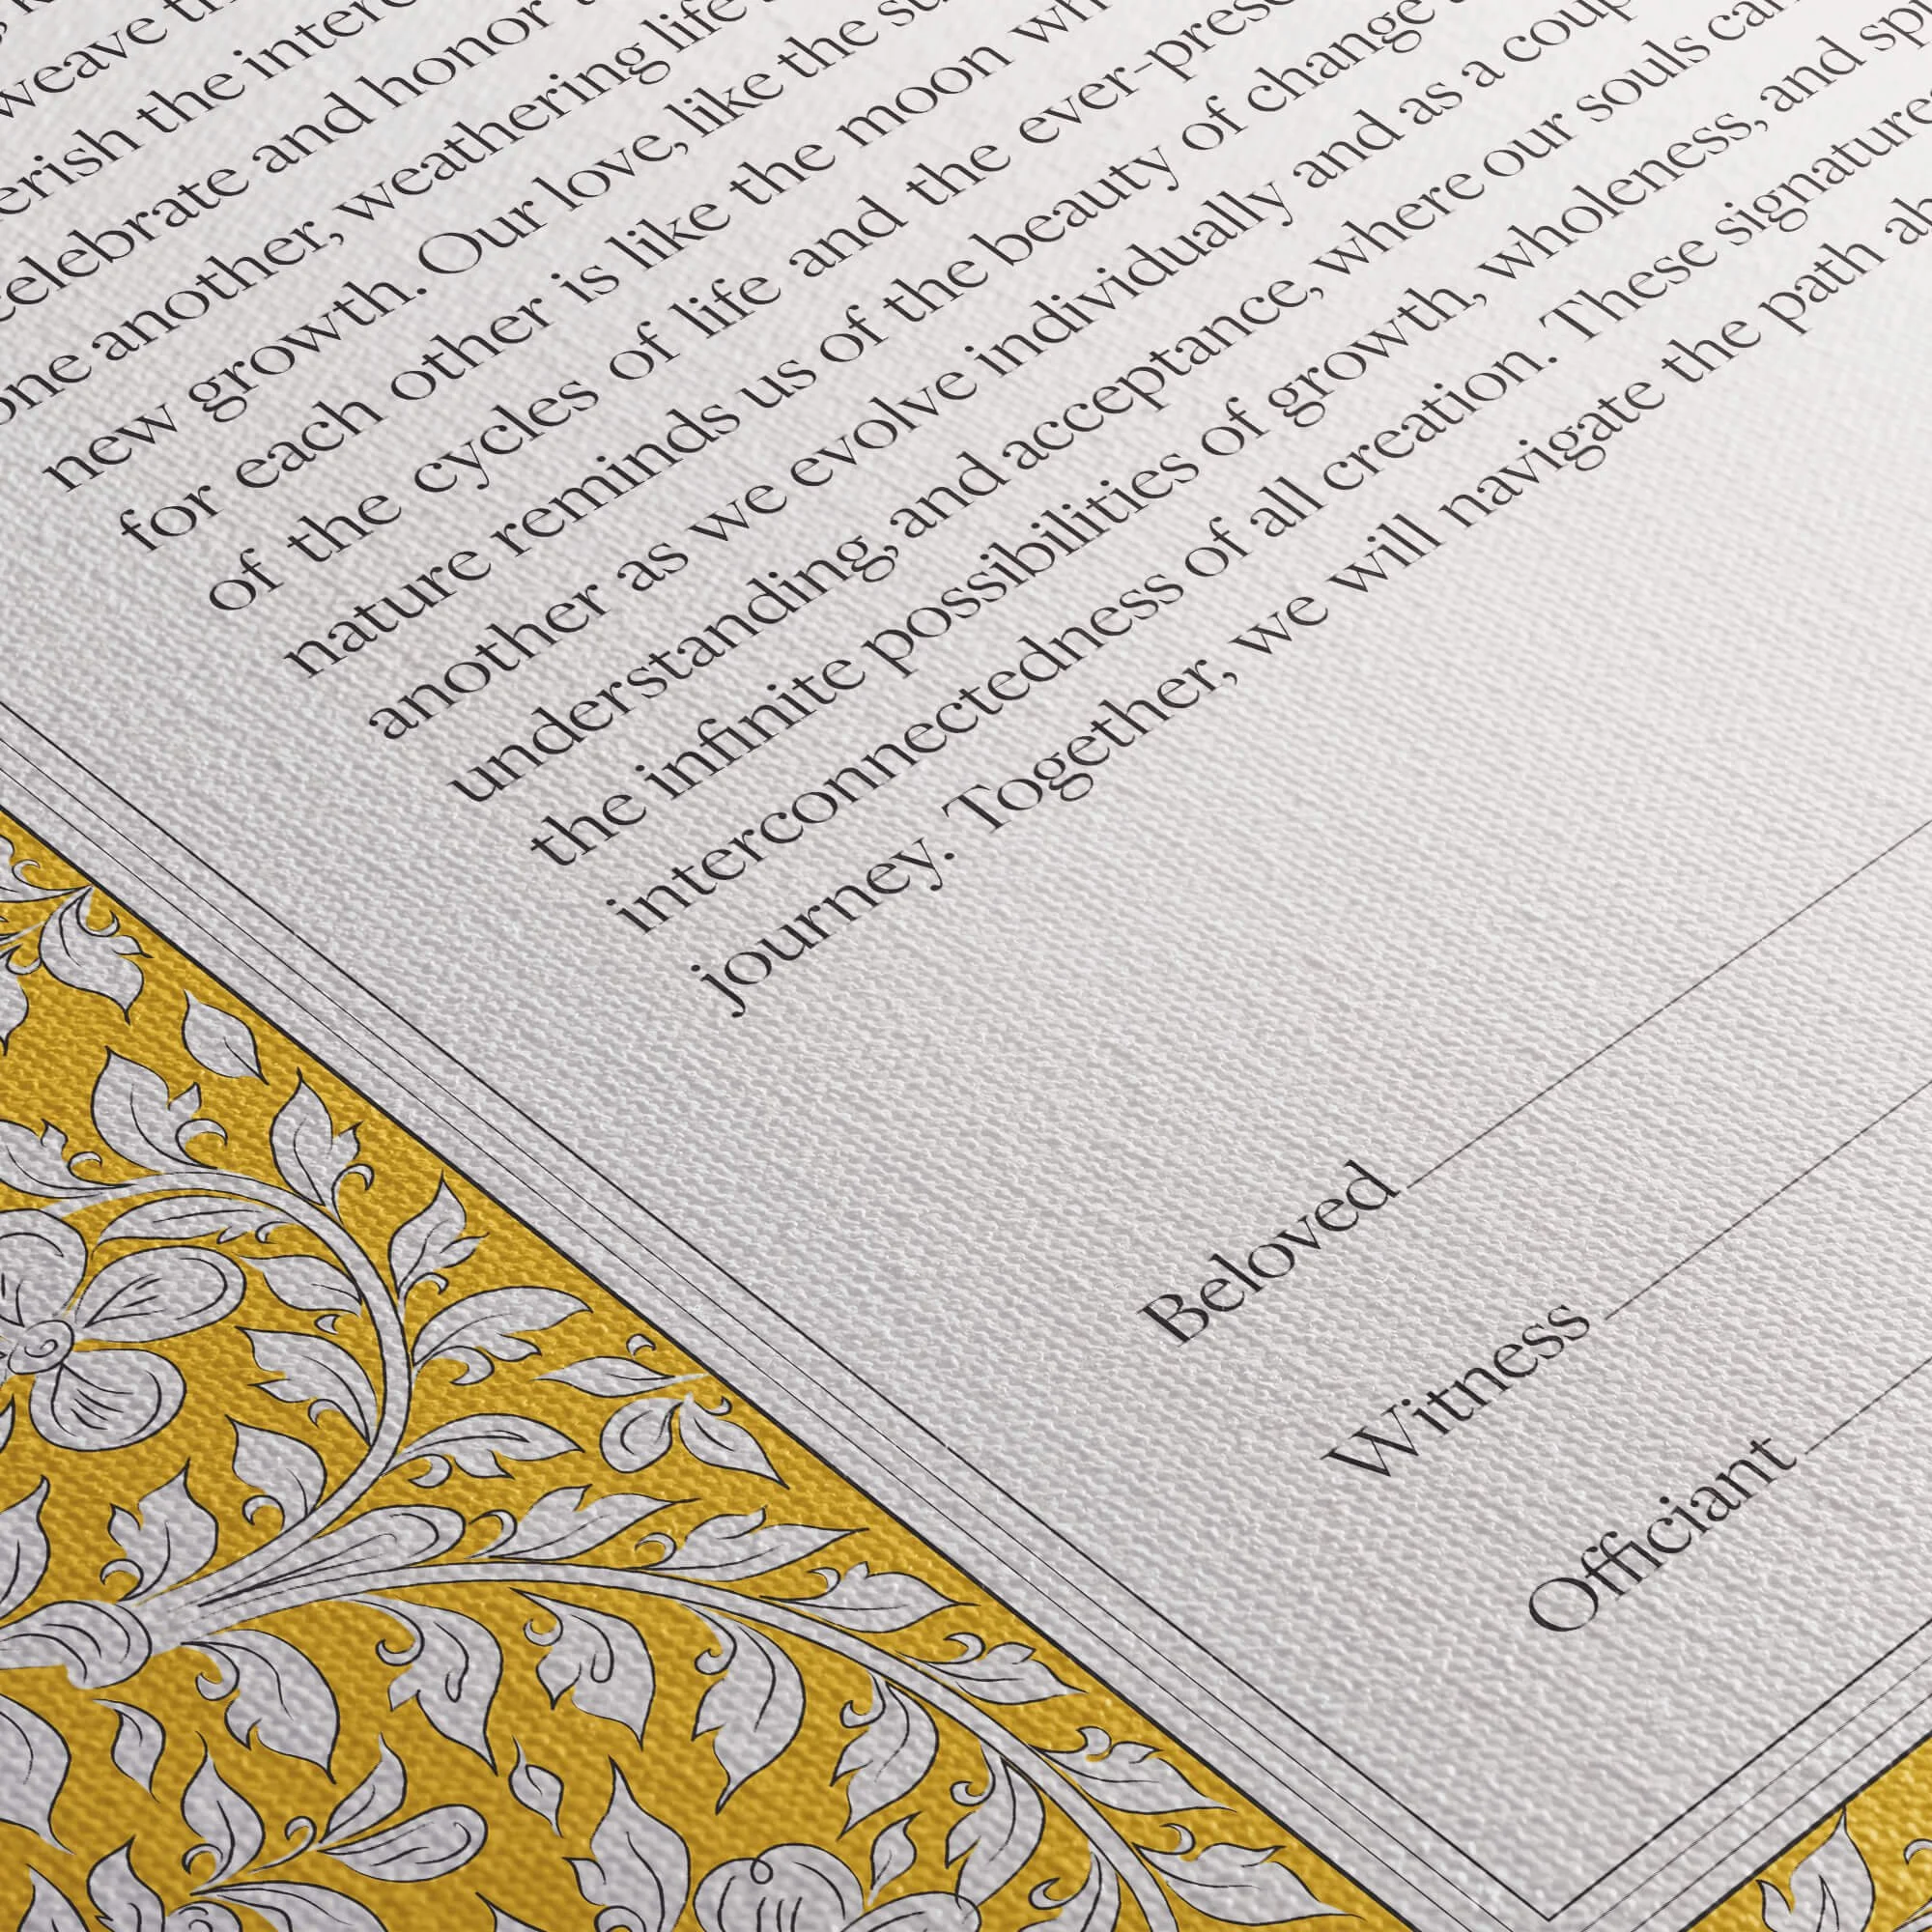 weave
erish the
celebrate and honor
one another, weathering life
new growth. Our love, like the
for each other is like the moon
of the cycles of life and the
nature reminds us of the beauty of change
another as we evolve individually and as a
understanding, and acceptance, where our souls
the infinite possibilities of growth, wholeness, and
interconnectedness of all creation. These
journey. Together, we will navigate the path
Beloved
Witness
Officiant